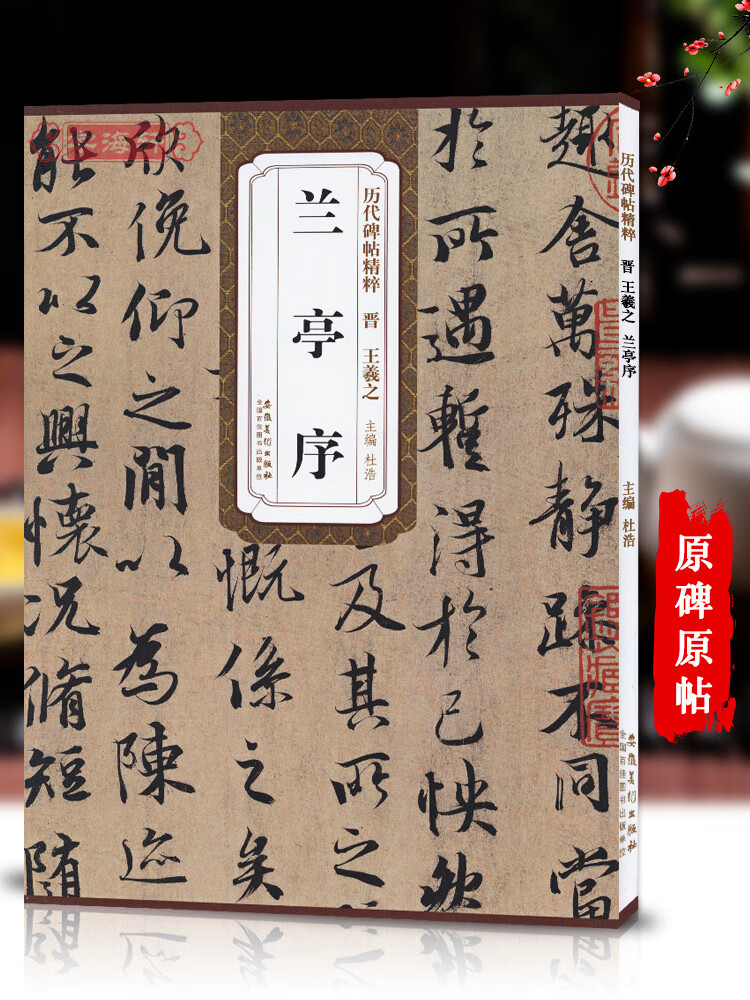 历代碑帖精粹 晋 王羲之
主编 杜浩
兰亭序
安徽美术出版社
全国百佳图书出版单位
趣舍萬殊静躁不同當
於所遇蹔得於己怏然
及其所之
慨係之矣
欣俛仰之閒以為陳迹
能不以之興懷況脩短隨
历代碑帖精粹 晋 王羲之 兰亭序
主编 杜浩
安徽美术出版社
全国百佳图书出版单位
原碑原帖